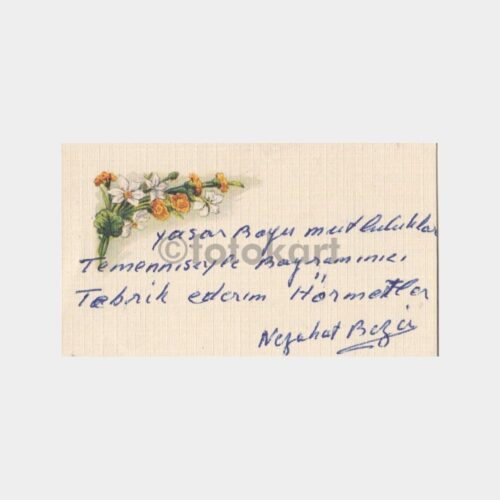 yaşar Boyu mutluluklar
Temennisiyle Bayramınızı
Tebrik ederim Hörmetler
Nezahat
©fotokart